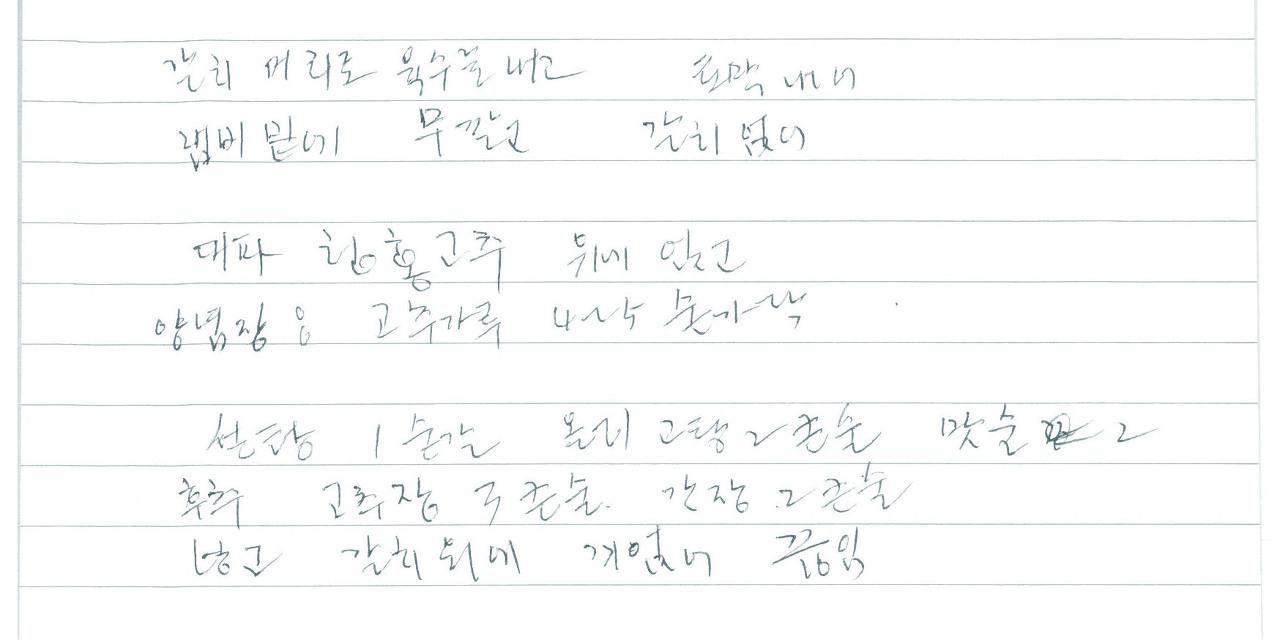 갈치 머리로 육수를 내고 토막 내어
냄비 밑에 무 깔고 갈치 얹어
대파 청홍고추 위에 얹고
양념장은 고추가루 4~5 숟가락
설탕 1 숟갈 올리고당 2 큰술 맛술 2
후추 고추장 3 큰술. 간장 2 큰술
넣고 갈치 위에 끼얹어 끓임